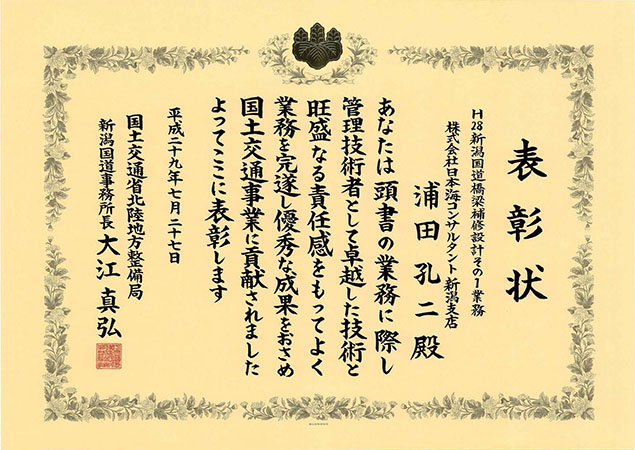 表彰状
H28新潟国道橋梁補修設計その1業務
株式会社日本海コンサルタント 新潟支店
浦田 孔二 殿
あなたは頭書の業務に際し
管理技術者として卓越した技術と
旺盛なる責任感をもってよく
業務を完遂し優秀な成果をおさめ
国土交通事業に貢献されました
よってここに表彰します
平成二十九年七月二十七日
国土交通省北陸地方整備局
新潟国道事務所長 大江 真弘